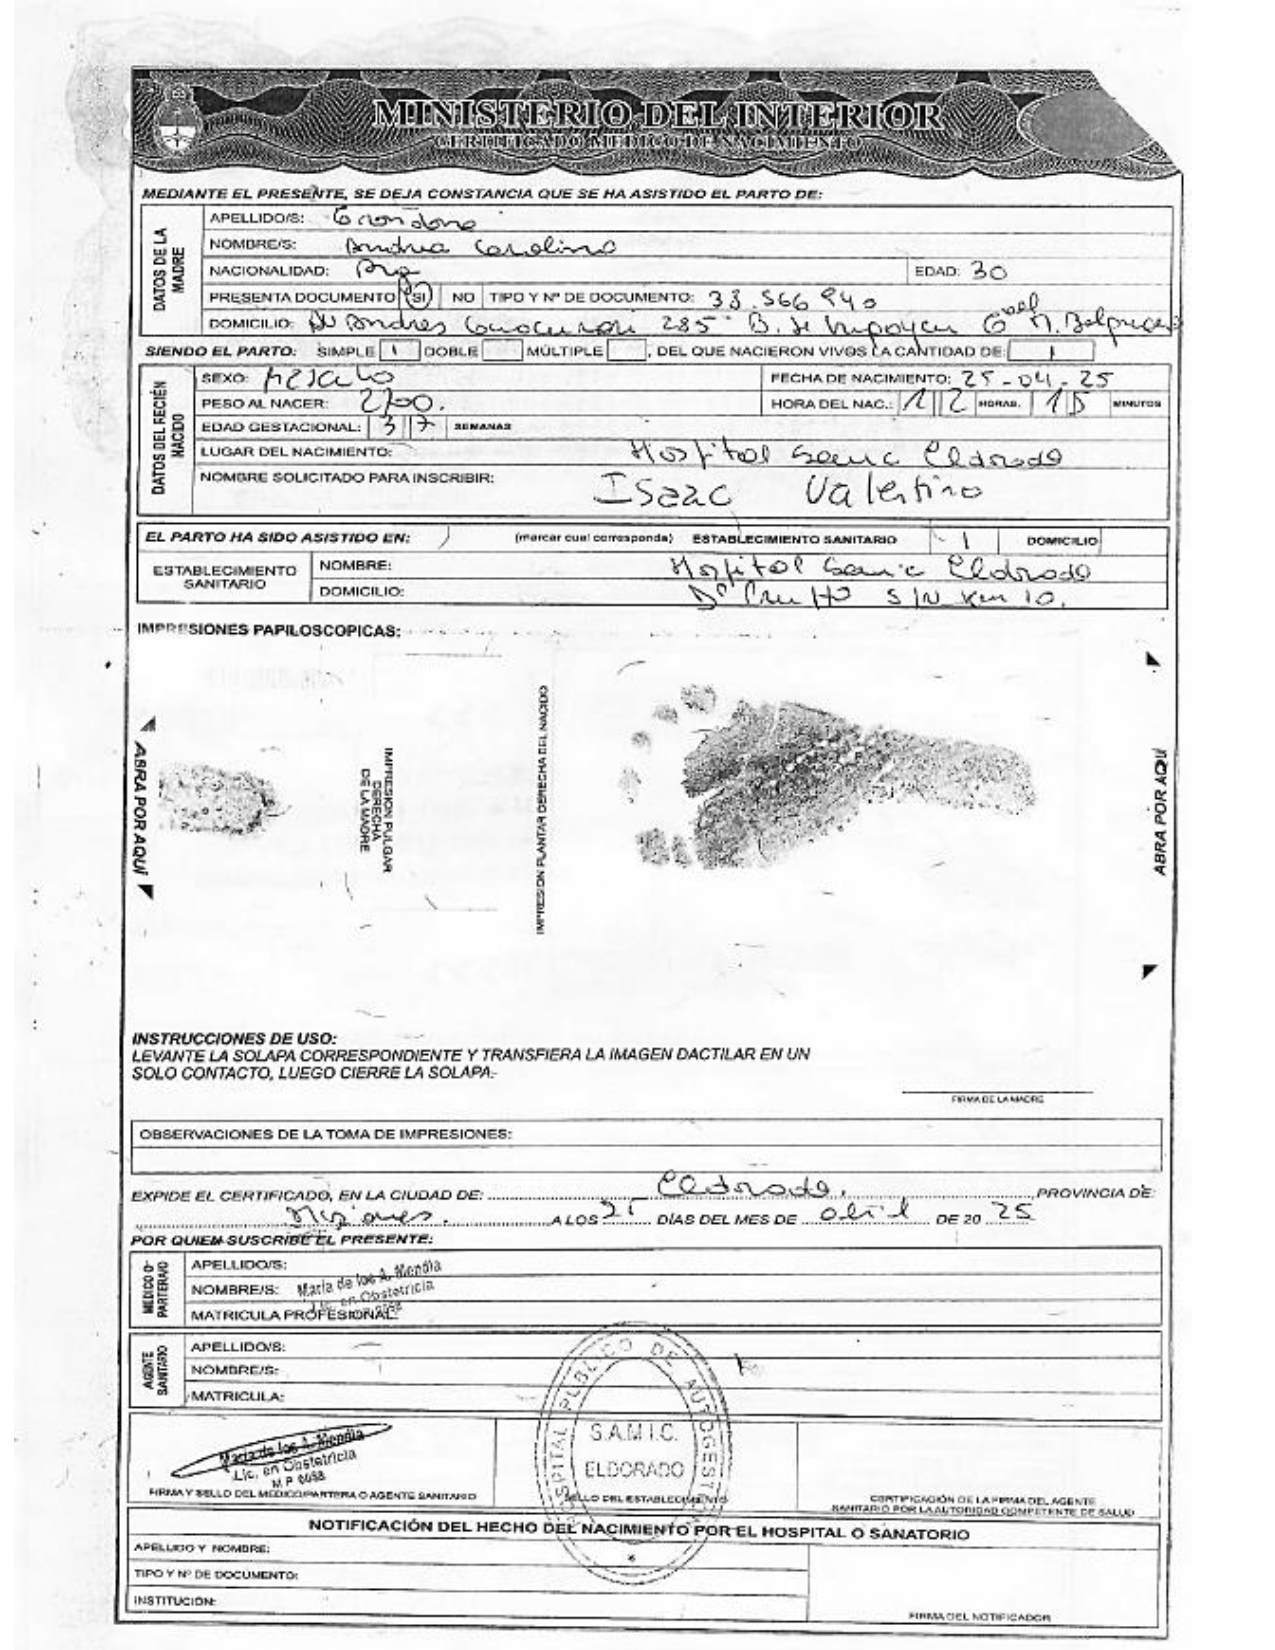 MINISTERIO DEL INTERIOR
CERTIFICADO MEDICO DE NACIMIENTO
MEDIANTE EL PRESENTE, SE DEJA CONSTANCIA QUE SE HA ASISTIDO EL PARTO DE:
DATOS DE LA MADRE
APELLIDO/S:
NOMBRE/S: Andrea Carolina
NACIONALIDAD: Arg EDAD: 30
PRESENTA DOCUMENTO SI NO TIPO Y Nº DE DOCUMENTO: 33.566.940
DOMICILIO: Av Andres 285 B.
SIENDO EL PARTO: SIMPLE 1 DOBLE MÚLTIPLE , DEL QUE NACIERON VIVOS LA CANTIDAD DE: 1
DATOS DEL RECIÉN NACIDO
SEXO: Masculino FECHA DE NACIMIENTO: 25-04-25
PESO AL NACER: 2700. HORA DEL NAC.: 12 HORAS. 15 MINUTOS
EDAD GESTACIONAL: 37 SEMANAS
LUGAR DEL NACIMIENTO: Hospital Samic Eldorado
NOMBRE SOLICITADO PARA INSCRIBIR: Isaac Valentino
EL PARTO HA SIDO ASISTIDO EN: (marcar cual corresponda) ESTABLECIMIENTO SANITARIO 1 DOMICILIO
ESTABLECIMIENTO SANITARIO
NOMBRE: Hospital Samic Eldorado
DOMICILIO: S/N Km 10.
IMPRESIONES PAPILOSCOPICAS:
ABRA POR AQUÍ
IMPRESION PULGAR DERECHA DE LA MADRE
IMPRESION PLANTAR DERECHA DEL NACIDO
ABRA POR AQUÍ
INSTRUCCIONES DE USO:
LEVANTE LA SOLAPA CORRESPONDIENTE Y TRANSFIERA LA IMAGEN DACTILAR EN UN
SOLO CONTACTO, LUEGO CIERRE LA SOLAPA.
FIRMA DE LA MADRE
OBSERVACIONES DE LA TOMA DE IMPRESIONES:
EXPIDE EL CERTIFICADO, EN LA CIUDAD DE: Eldorado. PROVINCIA DE:
Misiones. A LOS 25 DÍAS DEL MES DE abril DE 20 25
POR QUIEN SUSCRIBE EL PRESENTE:
MEDICO O PARTERA/O
APELLIDO/S:
NOMBRE/S: María de los A. Mendia
Lic. en Obstetricia
MATRICULA PROFESIONAL:
AGENTE SANITARIO
APELLIDO/S:
NOMBRE/S:
MATRICULA:
HOSPITAL PUBLICO DE AUTOGESTION
S.A.M.I.C.
ELDORADO
María de los A. Mendia
Lic. en Obstetricia
FIRMA Y SELLO DEL MEDICO/PARTERA O AGENTE SANITARIO
SELLO DEL ESTABLECIMIENTO
CERTIFICACIÓN DE LA FIRMA DEL AGENTE
SANITARIO POR LA AUTORIDAD COMPETENTE DE SALUD
NOTIFICACIÓN DEL HECHO DEL NACIMIENTO POR EL HOSPITAL O SANATORIO
APELLIDO Y NOMBRE:
TIPO Y Nº DE DOCUMENTO:
INSTITUCIÓN:
FIRMA DEL NOTIFICADOR